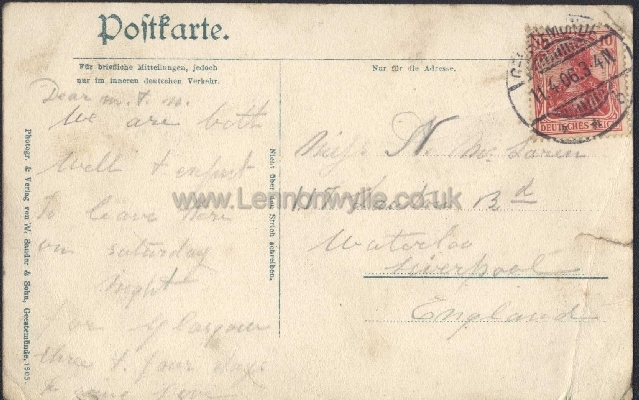 Postkarte.
Für briefliche Mitteilungen, jedoch
nur im inneren deutschen Verkehr.
Nur für die Adresse.
11.4.06.3-4N
DEUTSCHES REICH
Dear m. & m.
We are both
well & expect
to leave here
on saturday
night
for Glasgow
three & four days
Miss N. McLaren
115 Rd
Waterloo
Liverpool
England
Nicht über den Strich schreiben.
Photogr. & Verlag von W. Sander & Sohn, Geestemünde, 1905
www.Lennonwylie.co.uk